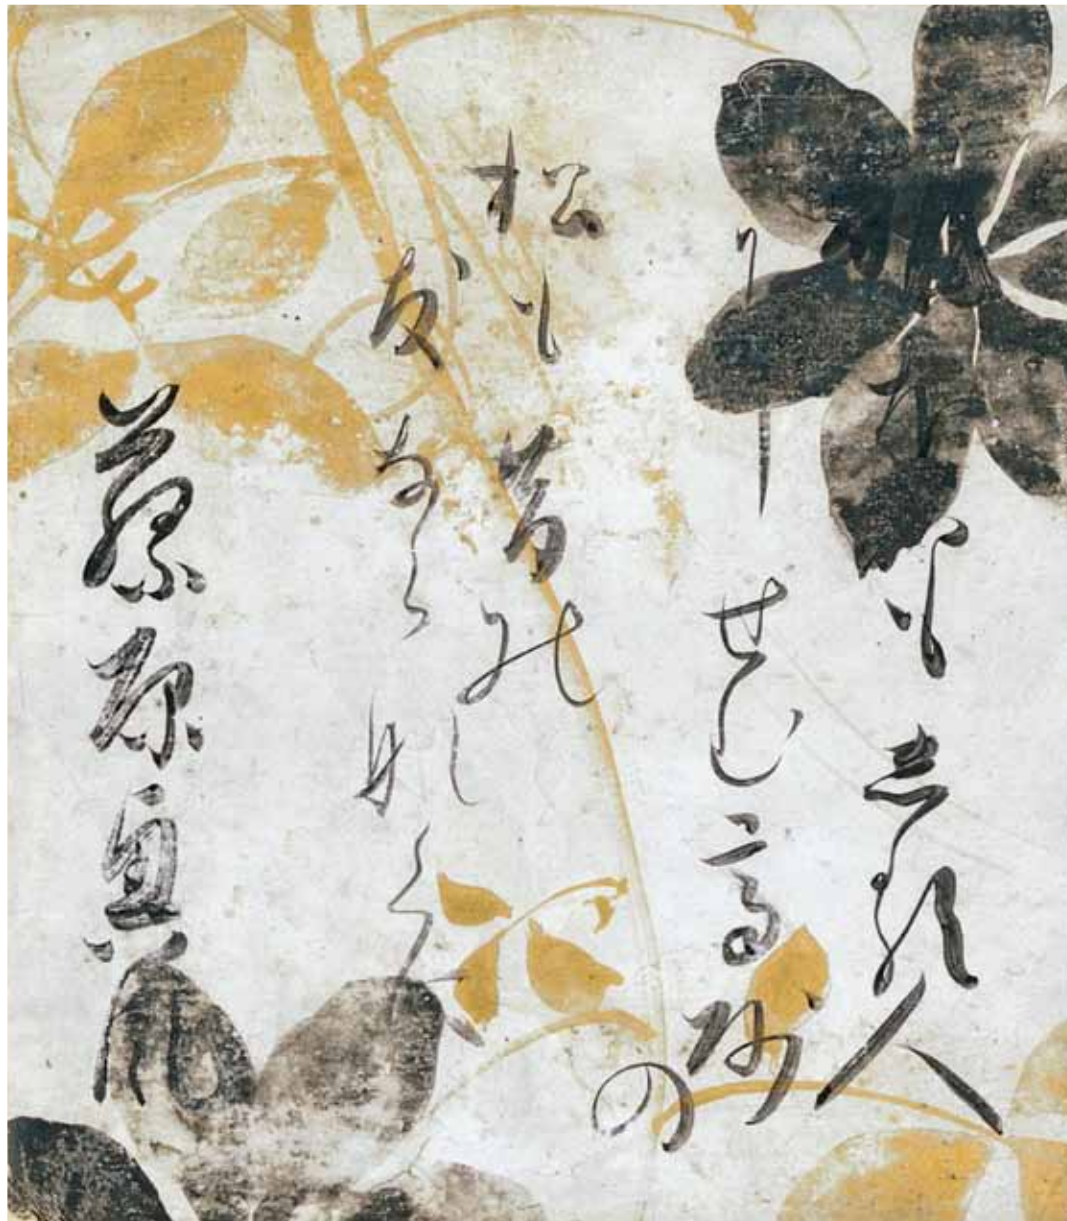 誰をかも志る人
にせむ高砂の
松も昔の
友ならなくに
藤原興風